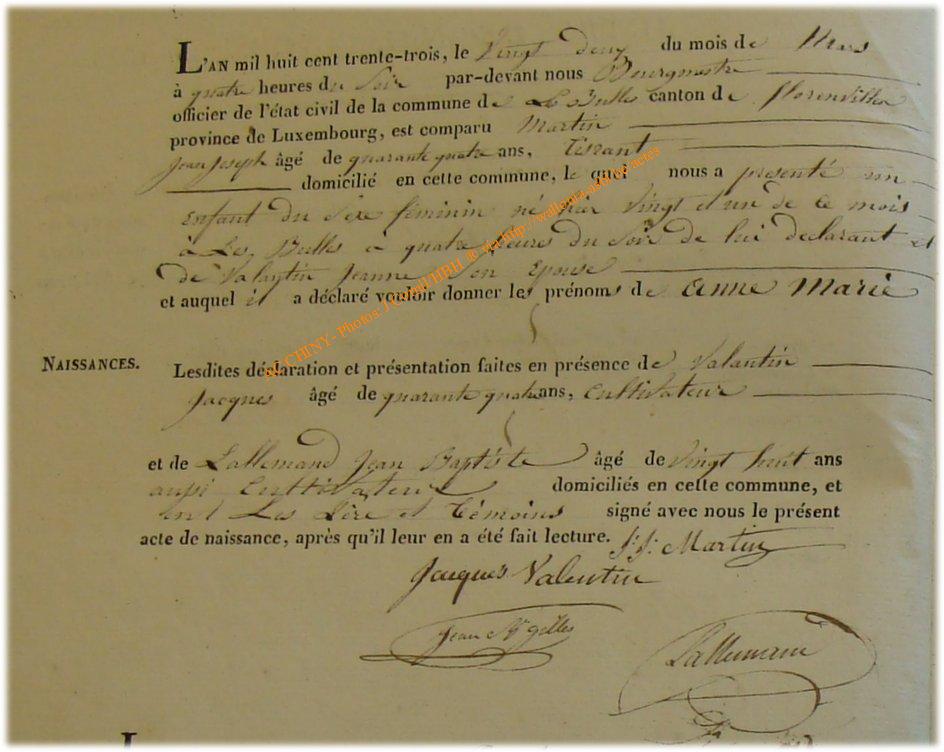 L'AN mil huit cent trente-trois, le Vingt deux du mois de Mars
à quatre heures du Soir par-devant nous Bourgmestre
officier de l'état civil de la commune de Les Bulles canton de florenville
province de Luxembourg, est comparu Martin
Jean Joseph âgé de quarante quatre ans, Tisrant
domicilié en cette commune, le quel nous a presenté un
Enfant du Sexe féminin né hier Vingt et un de ce mois
à Les Bulles a quatre heures du Soir de lui declarant et
de Valantin Jeanne Son Epouse
et auquel il a déclaré vouloir donner les prénoms de anne Marie
NAISSANCES.
Lesdites déclaration et présentation faites en présence de Valantin
Jacques âgé de quarante quatre ans, Cultivateur
et de Lallemand Jean Baptiste âgé de vingt huit ans
aussi Cultivateur domiciliés en cette commune, et
ont Les Père et Témoins signé avec nous le présent
acte de naissance, après qu'il leur en a été fait lecture. J: J: Martin
Jacques Valentin
Jean Gilles
Lallemand
CHINY- Photos HBH @ http://wallonia-asbl.be actes